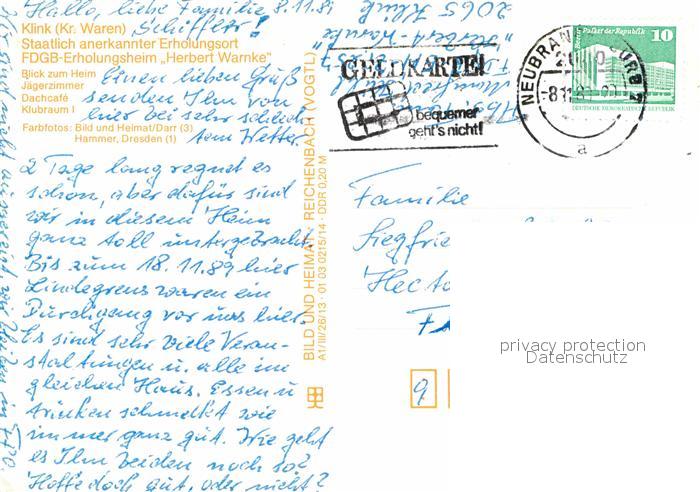 Hallo, liebe Familie 8.11.89
Schiffler!
Klink (Kr. Waren)
Staatlich anerkannter Erholungsort
FDGB-Erholungsheim „Herbert Warnke"
Blick zum Heim
Jägerzimmer
Dachcafé
Klubraum I
Farbfotos: Bild und Heimat/Darr (3)
Hammer, Dresden (1)
Einen lieben Gruß
senden Ihnen von
hier bei sehr schlech
tem Wetter.
2 Tage lang regnet es
schon, aber dafür sind
wir in diesem Heim
ganz toll untergebracht.
Bis zum 18.11.89 hier
Lindegrens waren ein
Durchgang vor uns hier.
Es sind sehr viele Veran-
staltungen u. alle im
gleichen Haus. Essen u
trinken schmeckt wie
immer ganz gut. Wie geht
es Ihnen beiden noch so?
Hoffe doch gut, oder nicht?
BILD UND HEIMAT · REICHENBACH (VOGTL)
A1/III/26/13 · 01 03 0215/14 · DDR 0,20 M
2065 Klink
"Herbert-Warnke"
Manfred
GELDKARTE!
bequemer
geht's nicht!
NEUBRANDENBURG 2
a
Palast der Republik
10
DEUTSCHE DEMOKRATISCHE REPUBLIK
Familie
Siegfrie
Hecto
9
privacy protection
Datenschutz